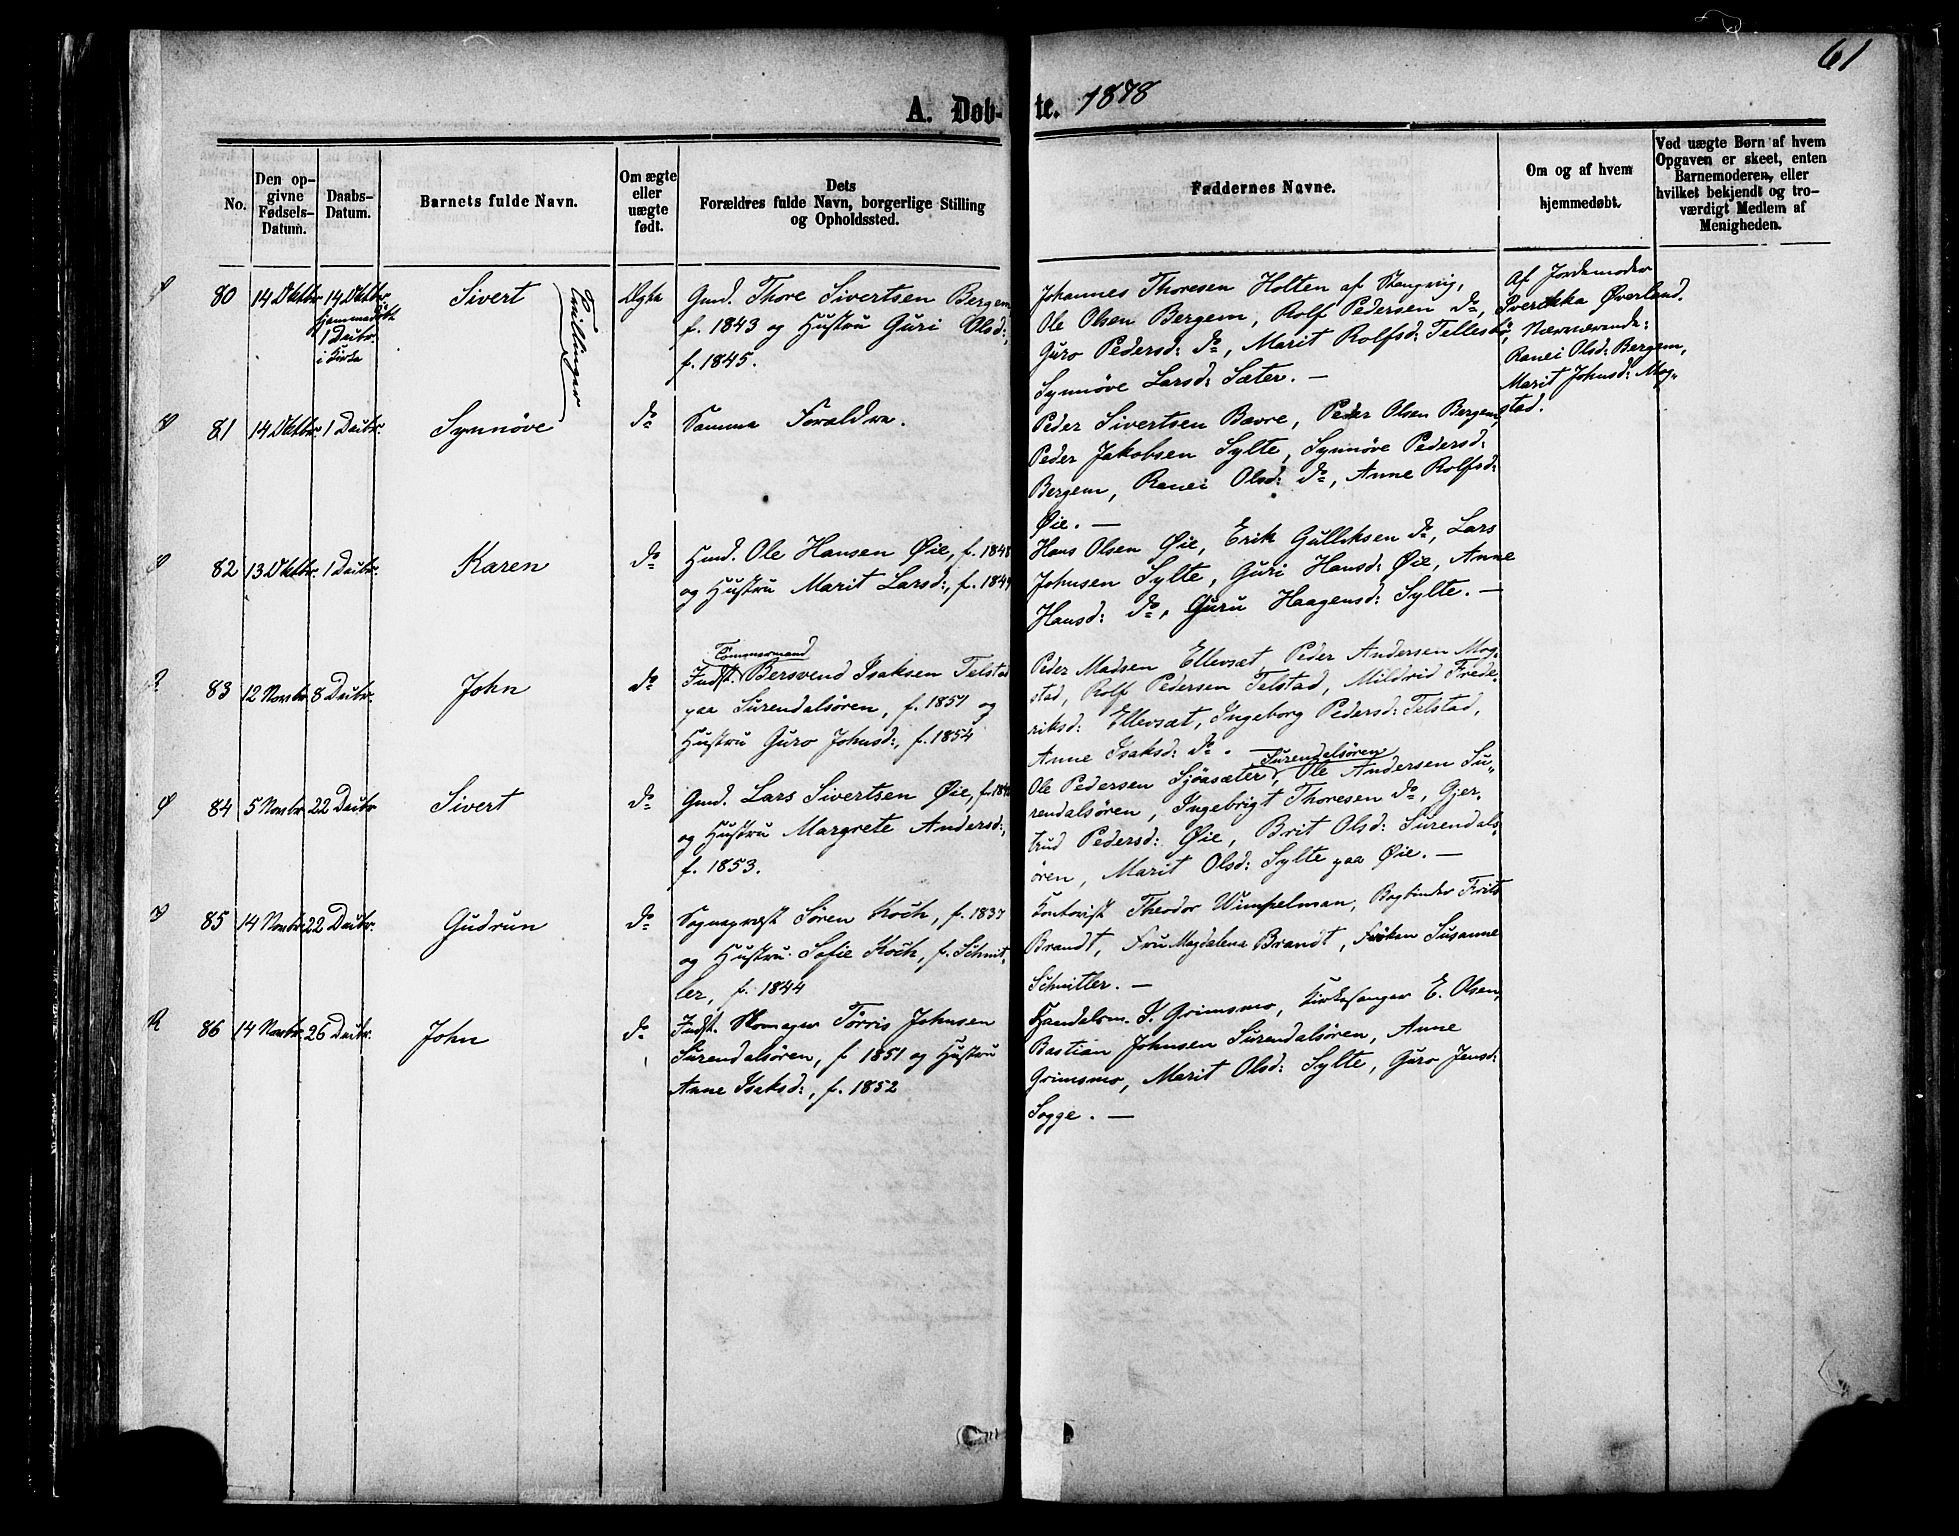 61
A. Døb-te. 1878
No.
Den op-
givne
Fødsels-
Datum.
Daabs-
Datum.
Barnets fulde Navn.
Om ægte
eller
uægte
født.
Dets
Forældres fulde Navn, borgerlige Stilling
og Opholdssted.
Faddernes Navne.
Om og af hvem
hjemmedøbt.
Ved uægte Børn af hvem
Opgaven er skeet, enten
Barnemoderen, eller
hvilket bekjendt og tro-
værdigt Medlem af
Menigheden.
80
14 Oktbr.
14 Oktbr.
hjemmedøbt
1 Decbr.
i Kirke
Sivert
Tvillinger
Ægte
Gmd. Thore Sivertsen Bergem
f. 1843 og Hustru Guri Olsd:,
f. 1845.
Johannes Thoresen Holten af Stangvig,
Ole Olsen Bergem, Rolf Pedersen do,
Guro Pedersd: do, Marit Rolfsd: Tellesbø,
Synnøve Larsd: Sæter. —
Af Jordemoder
Øverland.
Nærværende:
Ranei Olsd: Bergem,
Marit Johnsd: Mog-
stad.
81
14 Oktbr.
1 Decbr.
Synnøve
do
Samme Forældre.
Peder Sivertsen Bævre, Peder Olsen Bergem,
Peder Jakobsen Sylte, Synnøve Pedersd:
Bergem, Ranei Olsd: do, Anne Rolfsd:
Øie. —
82
13 Oktbr.
1 Decbr.
Karen
do
Gmd. Ole Hansen Øie, f. 1848
og Hustru Marit Larsd:, f. 1849
Hans Olsen Øie, Erik Gulliksen do, Lars
Johnsen Sylte, Guri Hansd: Øie, Anne
Hansd: do, Guru Haagensd: Sylte. —
83
12 Novbr.
8 Decbr.
John
do
Tømmermand
Indst. Bersvend Isaksen Telstad
paa Surendalsøren, f. 1851 og
Hustru Guro Johnsd:, f. 1854
Peder Madsen Ellevsæt, Peder Andersen Mog-
stad, Rolf Pedersen Telstad, Mildrid Frede-
riksd: Ellevsæt, Ingeborg Pedersd: Telstad,
Anne Isaksd: do. —
84
5 Novbr.
22 Decbr.
Sivert
do
Gmd. Lars Sivertsen Øie,
og Hustru Margrete Andersd:,
f. 1853.
Surendalsøren
Ole Pedersen Sjøasæter, Ole Andersen Su-
rendalsøren, Ingebrigt Thoresen do, Gjer-
trud Pedersd: Øie, Brit Olsd: Surendals-
øren, Marit Olsd: Sylte paa Øie. —
85
14 Novbr.
22 Decbr.
Gudrun
do
Sognepræst Søren Koch, f. 1837
og Hustru Sofie Koch, f. Schnit-
ler, f. 1844
Kontorist Theodor Wimpelman, Bogbinder Frits
Brandt, Fru Magdalena Brandt, Frøken Susanne
Schnitler. —
86
14 Novbr.
26 Decbr.
John
do
Indst. Skomager Tørris Johnsen
Surendalsøren, f. 1851 og Hustru
Anne Isaksd:, f. 1852
Handelsm. I. Grimsmo, Kirkesanger E. Olsen,
Bastian Johnsen Surendalsøren, Anne
Grimsmo, Marit Olsd: Sylte, Guro Jensd:
Sogge. —